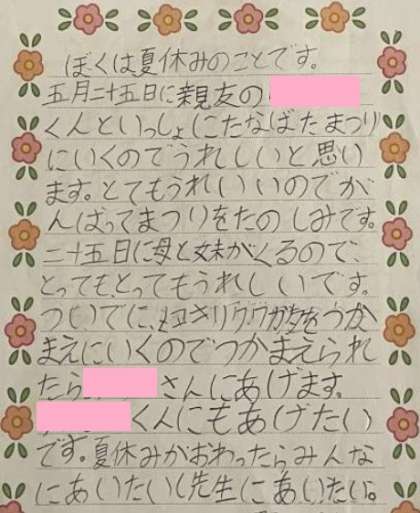 ぼくは夏休みのことです。
五月二十五日に親友の
くんといっしょにたなばたまつり
にいくのでうれしいと思い
ます。とてもうれいいのでが
んばってまつりをたのしみです。
二十五日に母と妹がくるので、
とっても、とってもうれしいです。
ついでに、クワガタをつか
まえにいくのでつかまえられ
たら さんにあげます。
くんにもあげたい
です。夏休みがおわったらみんな
にあいたいし先生にあいたい。